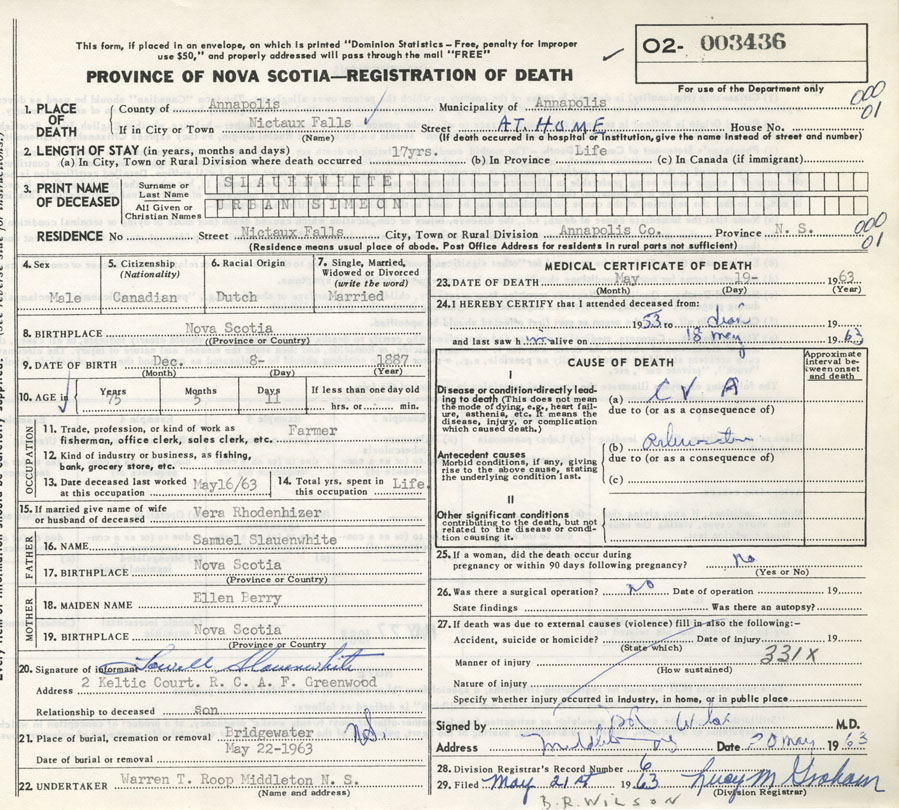 This form, if placed in an envelope, on which is printed "Dominion Statistics – Free, penalty for improper
use $50," and properly addressed will pass through the mail "FREE"
02- 003436
PROVINCE OF NOVA SCOTIA—REGISTRATION OF DEATH
For use of the Department only
1. PLACE OF DEATH County of Annapolis Municipality of Annapolis 000 01
If in City or Town Nictaux Falls (Name) Street AT HOME House No.
(If death occurred in hospital or institution, give the name instead of street and number)
2. LENGTH OF STAY (in years, months and days)
(a) In City, Town or Rural Division where death occurred 17yrs. (b) In Province Life (c) In Canada (if immigrant)
3. PRINT NAME OF DECEASED
Surname or Last Name SLAUENWHITE
All Given or Christian Names URBAN SIMEON
RESIDENCE No Street Nictaux Falls City, Town or Rural Division Annapolis Co. Province N. S. 000 01
(Residence means usual place of abode. Post Office Address for residents in rural parts not sufficient)
4. Sex Male
5. Citizenship (Nationality) Canadian
6. Racial Origin Dutch
7. Single, Married, Widowed or Divorced (write the word) Married
8. BIRTHPLACE Nova Scotia
((Province or Country)
9. DATE OF BIRTH Dec. 8- 1887
(Month) (Day) (Year)
10. AGE in Years 75 Months 5 Days 11 If less than one day old
hrs. or min.
OCCUPATION
11. Trade, profession, or kind of work as Farmer
fisherman, office clerk, sales clerk, etc.
12. Kind of industry or business, as fishing,
bank, grocery store, etc.
13. Date deceased last worked at this occupation May16/63
14. Total yrs. spent in this occupation Life
15. If married give name of wife or husband of deceased Vera Rhodenhizer
FATHER
16. NAME Samuel Slauenwhite
17. BIRTHPLACE Nova Scotia
(Province or Country)
MOTHER
18. MAIDEN NAME Ellen Berry
19. BIRTHPLACE Nova Scotia
(Province or Country)
20. Signature of informant Lowell Slauenwhite
Address 2 Keltic Court. R. C. A. F. Greenwood
Relationship to deceased son
21. Place of burial, cremation or removal Bridgewater N.S.
Date of burial or removal May 22-1963
22. UNDERTAKER Warren T. Roop Middleton N. S.
(Name and address)
MEDICAL CERTIFICATE OF DEATH
23. DATE OF DEATH May 19- 1963
(Month) (Day) (Year)
24. I HEREBY CERTIFY that I attended deceased from:
1953 to 19
and last saw him alive on 18 May 1963
CAUSE OF DEATH
Approximate interval between onset and death
I
Disease or condition-directly leading to death (This does not mean the mode of dying, e.g., heart failure, asthenia, etc. It means the disease, injury, or complication which caused death.)
(a) C V A
due to (or as a consequence of)
Antecedent causes
Morbid conditions, if any, giving rise to the above cause, stating the underlying condition last.
(b)
due to (or as a consequence of)
(c)
II
Other significant conditions
contributing to the death, but not related to the disease or condition causing it.
25. If a woman, did the death occur during
pregnancy or within 90 days following pregnancy? No
(Yes or No)
26. Was there a surgical operation? no Date of operation 19
State findings Was there an autopsy?
27. If death was due to external causes (violence) fill in also the following:–
Accident, suicide or homicide? Date of injury 19
(State which)
331X
Manner of injury
(How sustained)
Nature of injury
Specify whether injury occurred in industry, in home, or in public place
Signed by M.D.
Address Middleton Date 20 May 1963
28. Division Registrar's Record Number 6
29. Filed May 21st 1963 Lucy M Graham
(Division Registrar)
B.R. WILSON